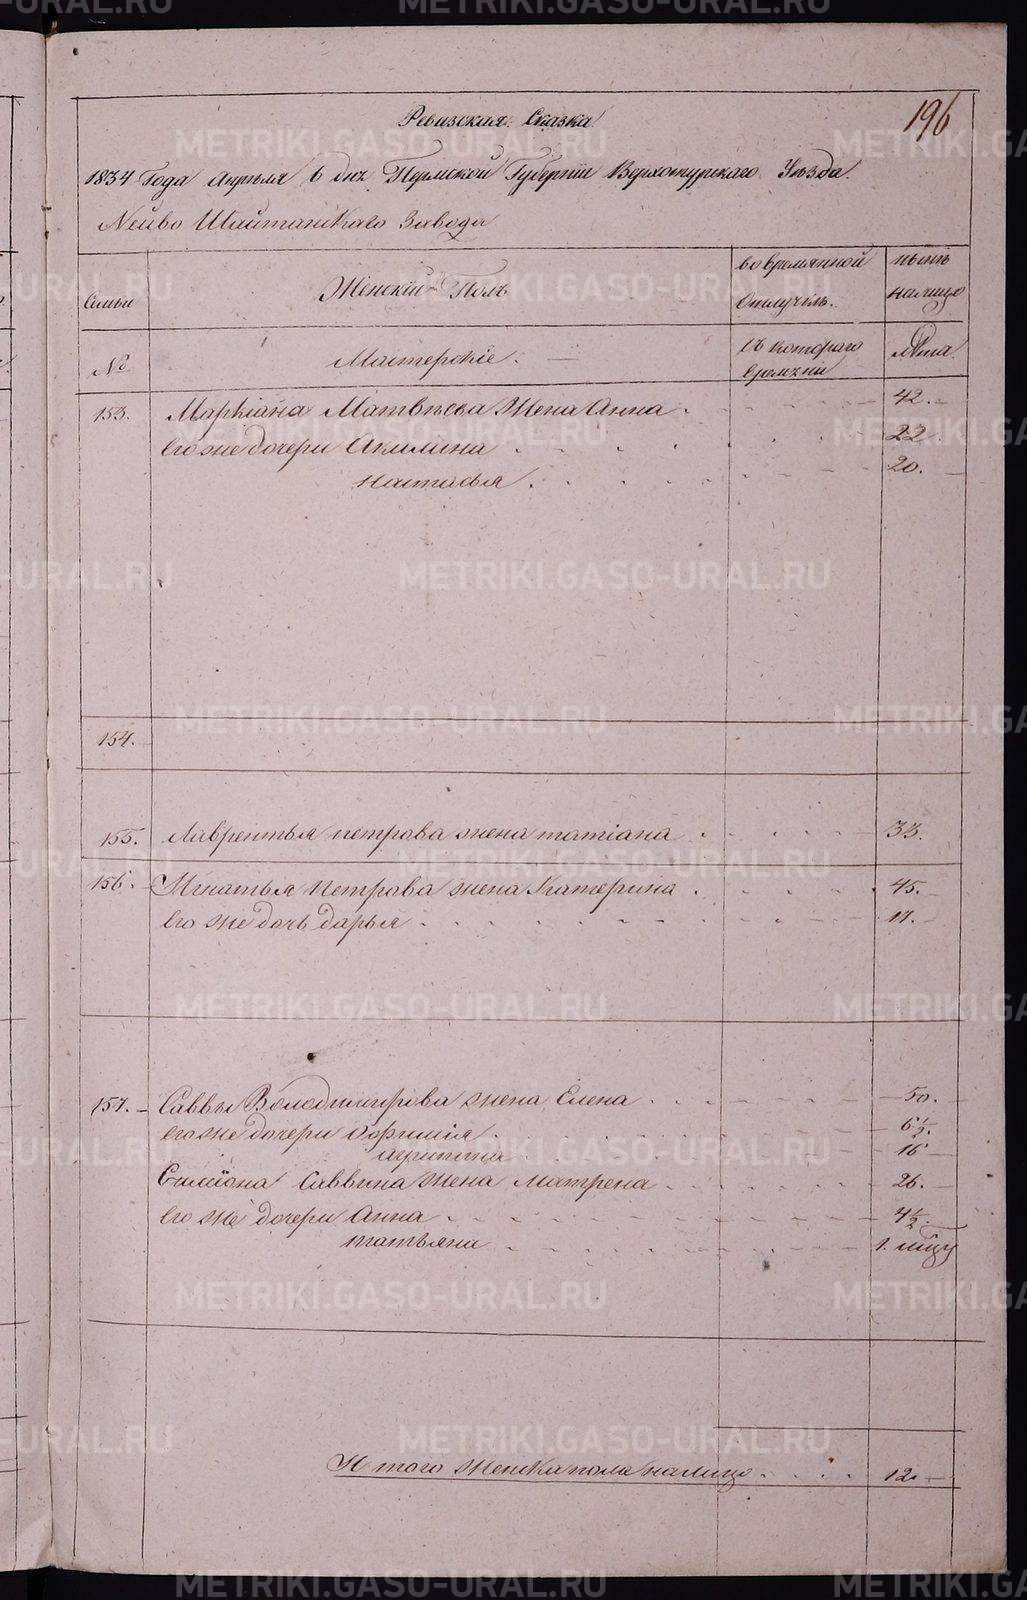 196
Ревизская Сказка
1834 Года апреля 6 дня Пермской Губернiи Верхотурскаго Уезда
Нейво Шайтанскаго завода
Семьи
Женскiй Полъ
во временной
отлучке.
ныне
налицо
№
Мастерскiе.
съ котораго
времени
Лета
153. Маркiана Матвеева Жена Анна 42.
его же дочери Акилина 22.
настасья 20.
154.
155. Лаврентья петрова жена татiана 33.
156. Игнатья петрова жена Катерина 45.
его же дочь дарья 17.
157. Саввы Володимирова жена Елена 50.
его же дочери офимiя 6 1/2
агрипина 16
Симiона Саввина жена матрена 26.
его же дочери Анна 4 1/2
татьяна
И того женска пола налицо 12
METRIKI.GASO-URAL.RU